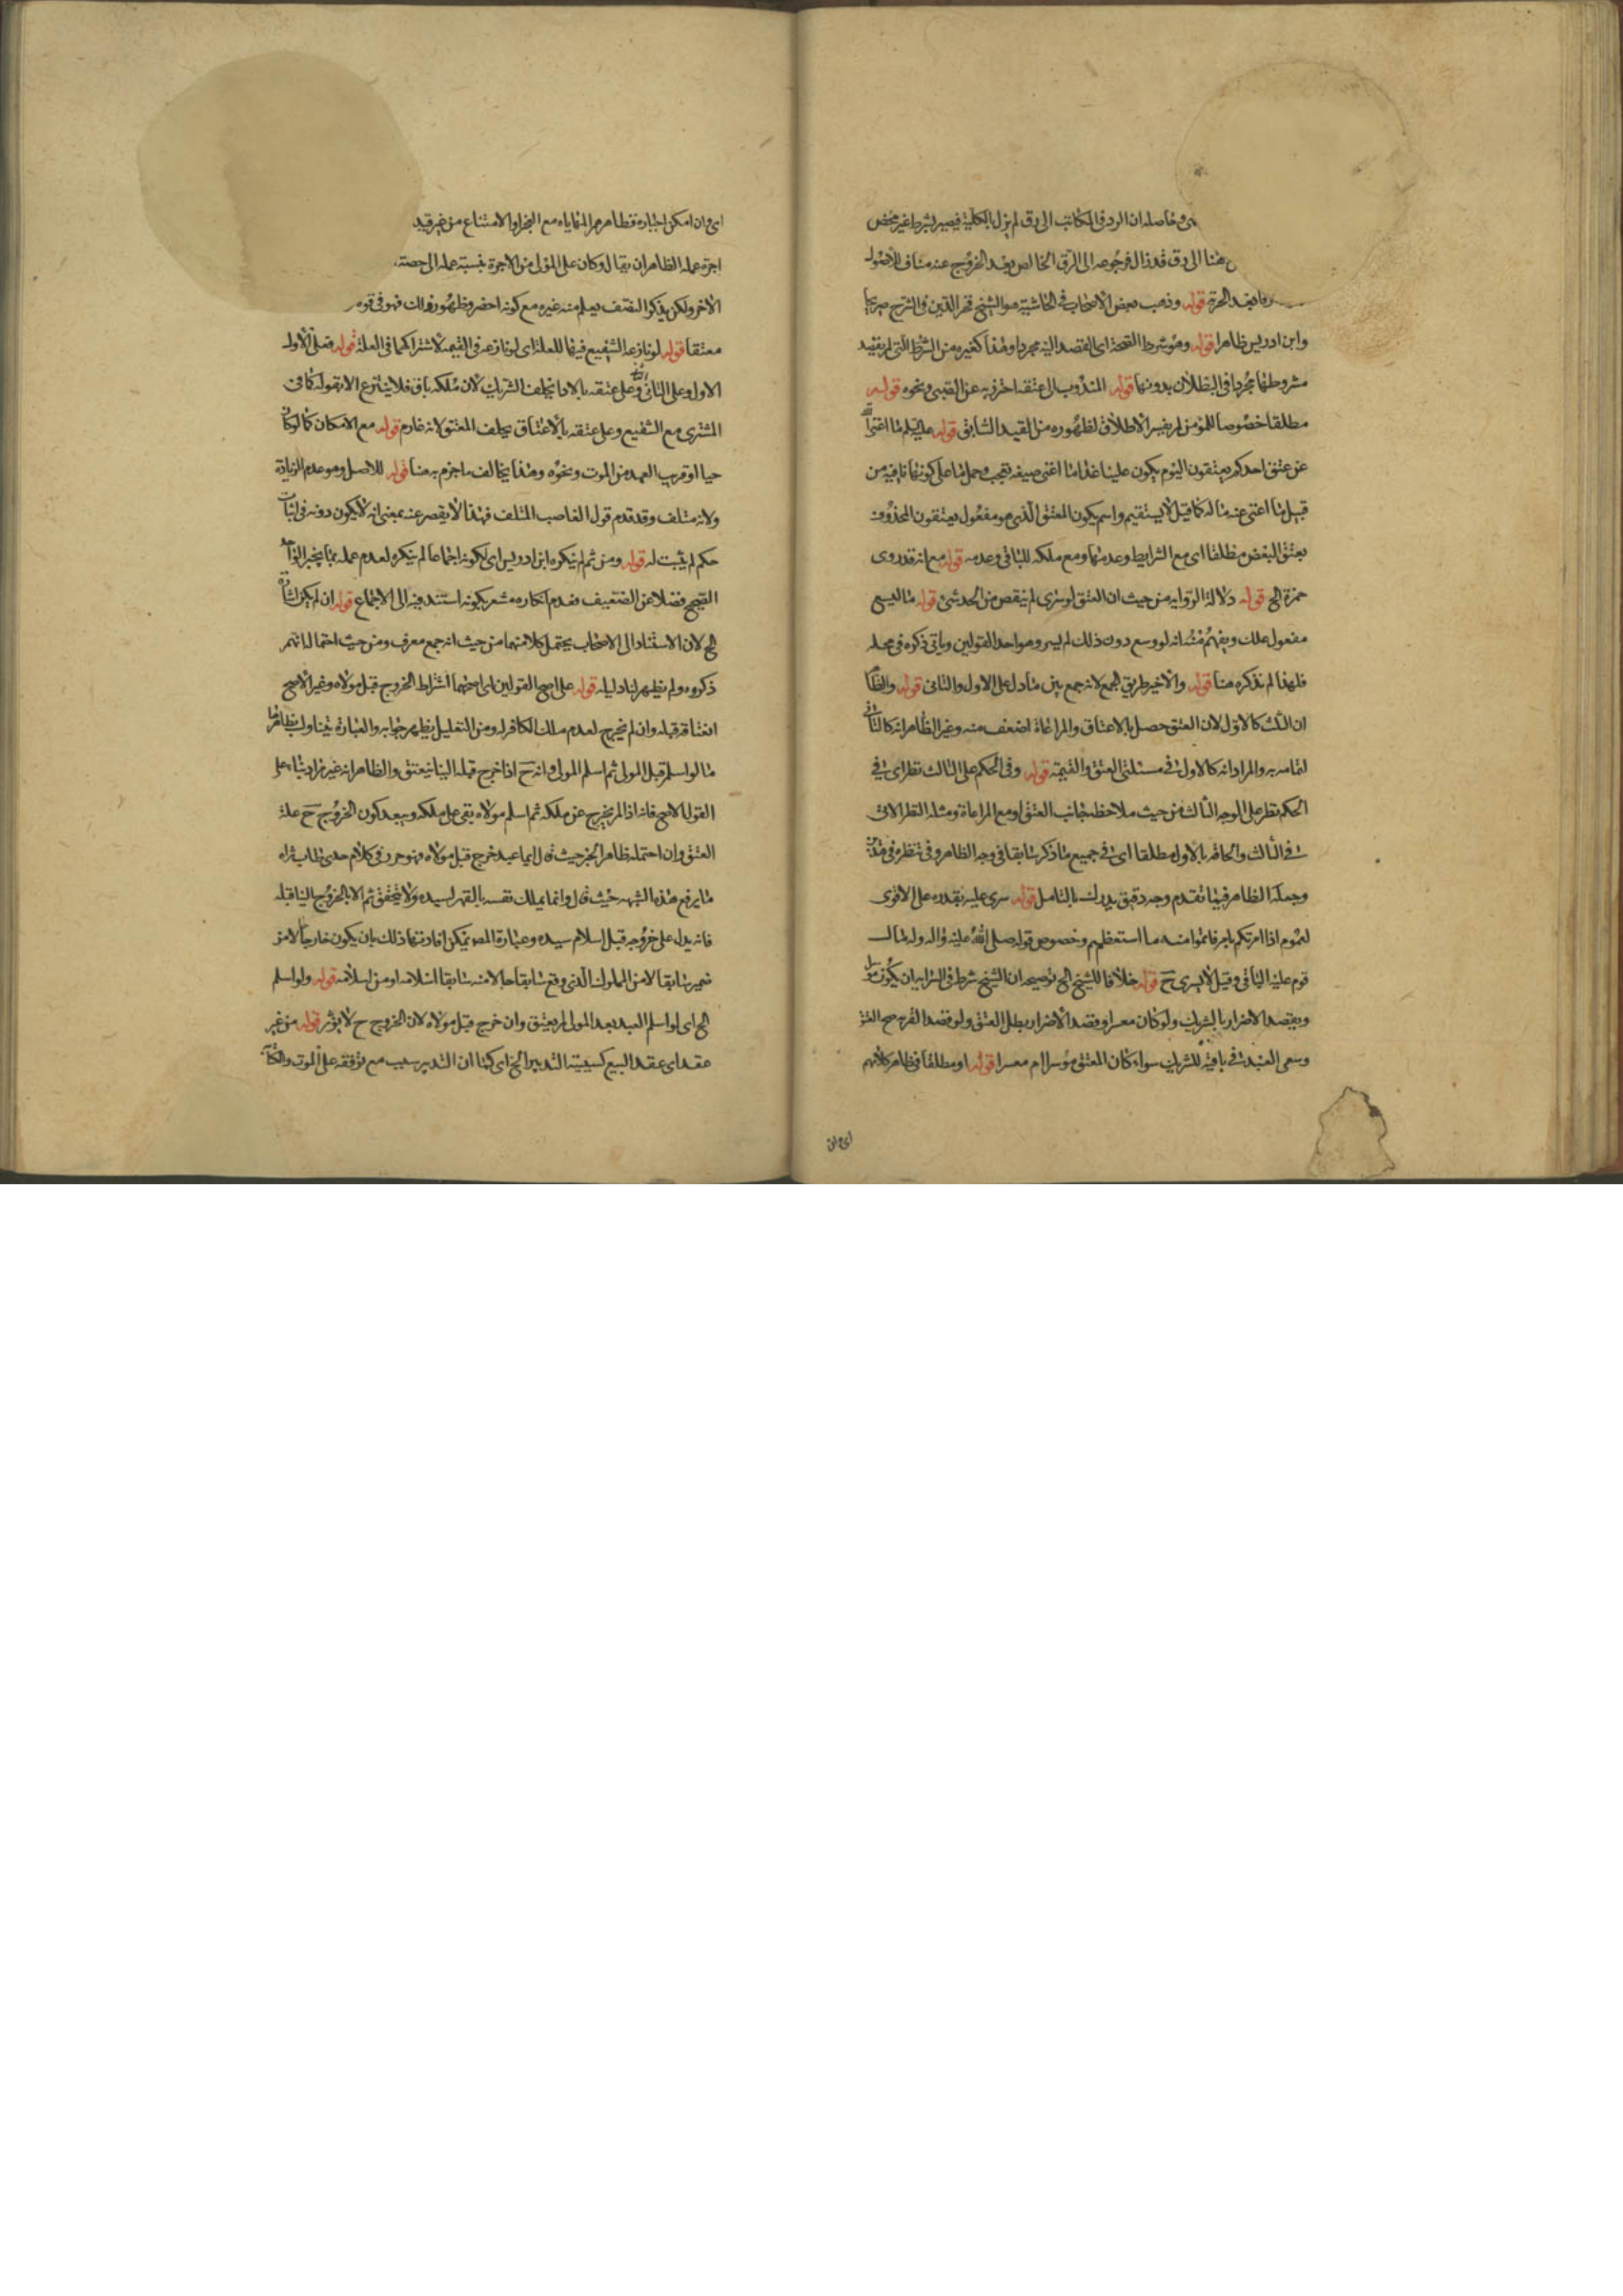 وحاصله ان الرد فى المكاتب الى رق لم يزل بالكلية فيصير بشرط غير محض
هنا الى رق قد زال فرجوعه الى الرق الخالص بعد الخروج عنه مناف للاصول
بعد الحرية قوله وذهب بعض الاصحاب فى الحاشية هو الشيخ فخر الدين فى الشرح صريحا
وابن ادريس ظاهرا قوله وهو شرط الصحة اى القصد اليه مجردا وهذا كغيره من الشرط التى لم يفسد
مشروطها بمجردها فى البطلان بدونها قوله المندوب الى عتقه احترز به عن الصبى ونحوه قوله
مطلقا خصوصا للمؤمن لم يفسر الاطلاق لظهوره من القيد السابق قوله عليكم ما اغنى الله
عن عتق احدكم يعتقون اليوم يكون علينا غدا ما اغنى صيغه تعجب وحمل ما على كونها نافيه من
قبيل ما اغنى عنه ماله كما قيل لا يستقيم واسم يكون المعتق الذى هو مفعول يعتقون المحذوف
بعتق البعض مطلقا اى مع الشرايط وعدمها ومع ملكه للباقى وعدمه قوله مع انه قد روى
حمزة الخ قوله دلالة الروايه من حيث ان العتق لو سرى لم ينقص من الحد شئ قوله ما ليسع
مفعول ملك ويفهم منه انه لو وسع دون ذلك لم يسر وهو احد القولين وياتى ذكره فى محله
فلهذا لم نذكره هنا قوله والاخير طريق الجمع لانه جمع بين ما دل على الاول والثانى قوله والظا
ان الثالث كالاول لان العتق حصل بالاعتاق والمراعاة اضعف منه وغير الظاهر انه كالثانى
لما مر به والمراد انه كالاول فى مسئلتى العتق والقيمة قوله وفى الحكم على الثالث نظر اى فى
الحكم نظر على الوجه الثالث من حيث ملاحظه جانب العتق او مع المراعاة ومثله النظر الاتى
فى الثالث والحاقه بالاول مطلقا اى فى جميع ما ذكر سابقا فى وجه الظاهر وفى تنظره فى هذه
وجعله الظاهر فيما تقدم وجه دقيق يدرك بالتامل قوله سرى عليه بقدره على الاقوى
لعموم اذا امرتكم بامر فاتوا منه ما استعظم وخصوص قوله صلى الله عليه واله وله مال
قوم عليه الباقى وقيل لا يسرى ح قوله خلافا للشيخ الخ توضيحه ان الشيخ شرط فى السرايه ان يكون موسرا
ويقصد الاضرار بالشريك ولو كان معسرا وقصد الاضرار بطل العتق ولو قصد القربه صح العتق
وسعى العبد فى باقيه للشريك سواء كان المعتق موسرا ام معسرا قوله او مطلقا فظاهر كلامهم
اى وان
اى وان امكن اجباره فظاهرهم المهاياه مع العجز او الامتناع من غير قيد
اجرة عمله الظاهر ان يقال وكان على المولى من الاجرة بنسبة عمله الى حصته
الاخر ولكن بذكر النصف يعلم منه غيره مع كونه احضر وظهور ذلك فهو فى قوه
معتقا قوله لو نازعه الشفيع فيها للعلة اى لو نازعه فى القيمه لاشتراكهما فى العلة قوله فعلى الاول
الاول وعلى الثانى وعلى عتقه بالاداء يحلف الشريك لان ملكه باق فلا ينتزع الا بقوله كما فى
المشترى مع الشفيع وعلى عتقه بالاعتاق يحلف المعتق لانه غارم قوله مع الامكان كما لو كان
حيا او قرب العهد من الموت ونحوه وهذا يخالف ما جزم به هنا قوله للاصل وهو عدم الزيادة
ولانه متلف وقد قدم قول الغاصب المتلف فهذا لا يقصر عنه بمعنى انه لا يكون دونه فى اثبات
حكم لم يثبت له قوله ومن ثم لم ينكره ابن ادريس اى لكونه اجماعا لم ينكره لعدم عمله بما يخبر الواحد
الصحيح فضلا عن الضعيف فعدم انكاره مشعر بكونه استند فيه الى الاجماع قوله ان لم يكن اشار
الخ لان الاستناد الى الاصحاب يحتمل كلا منهما من حيث انه جمع معرف ومن حيث احتمال انهم
ذكروه ولم يظهر لنا دليله قوله على اصح القولين اى اصحهما اشتراط الخروج قبل مولاه وغير الاصح
انعتاقه قبله وان لم يخرج لعدم ملك الكافر له ومن التعليل يظهر جوابه والعبارة يتناول بظاهرها
ما لو اسلم قبل المولى ثم اسلم المولى وانه ح اذا خرج قبله الينا ينعتق والظاهر انه غير مراد بناء على
القول الاصح فانه اذا لم يخرج عن ملكه ثم اسلم مولاه بقى على ملكه ويبعد كون الخروج ح علة
العتق وان احتمله ظاهر الخبر حيث قال ايما عبد خرج قبل مولاه فهو حر وفى كلام جدى طاب ثراه
ما يرفع هذه الشبهه حيث قال وانما يملك نفسه بالقهر لسيده ولا يتحقق ثم الا بالخروج الينا قبله
فانه يدل على خروجه قبل اسلام سيده وعبارة المص يمكن افادتها ذلك بان يكون خارجا لا من
ضمير سابقا لا من المملوك الذى وقع سابقا حالا منه سابقا اسلامه او من اسلامه قوله ولو اسلم
الخ اى لو اسلم العبد بعد المولى لم يعتق وان خرج قبل مولاه لان الخروج ح لا يؤثر قوله من غير
عقد اى عقد البيع كسببية التدبير الخ اى كما ان التدبير سبب مع توقفه على الموت والكتا